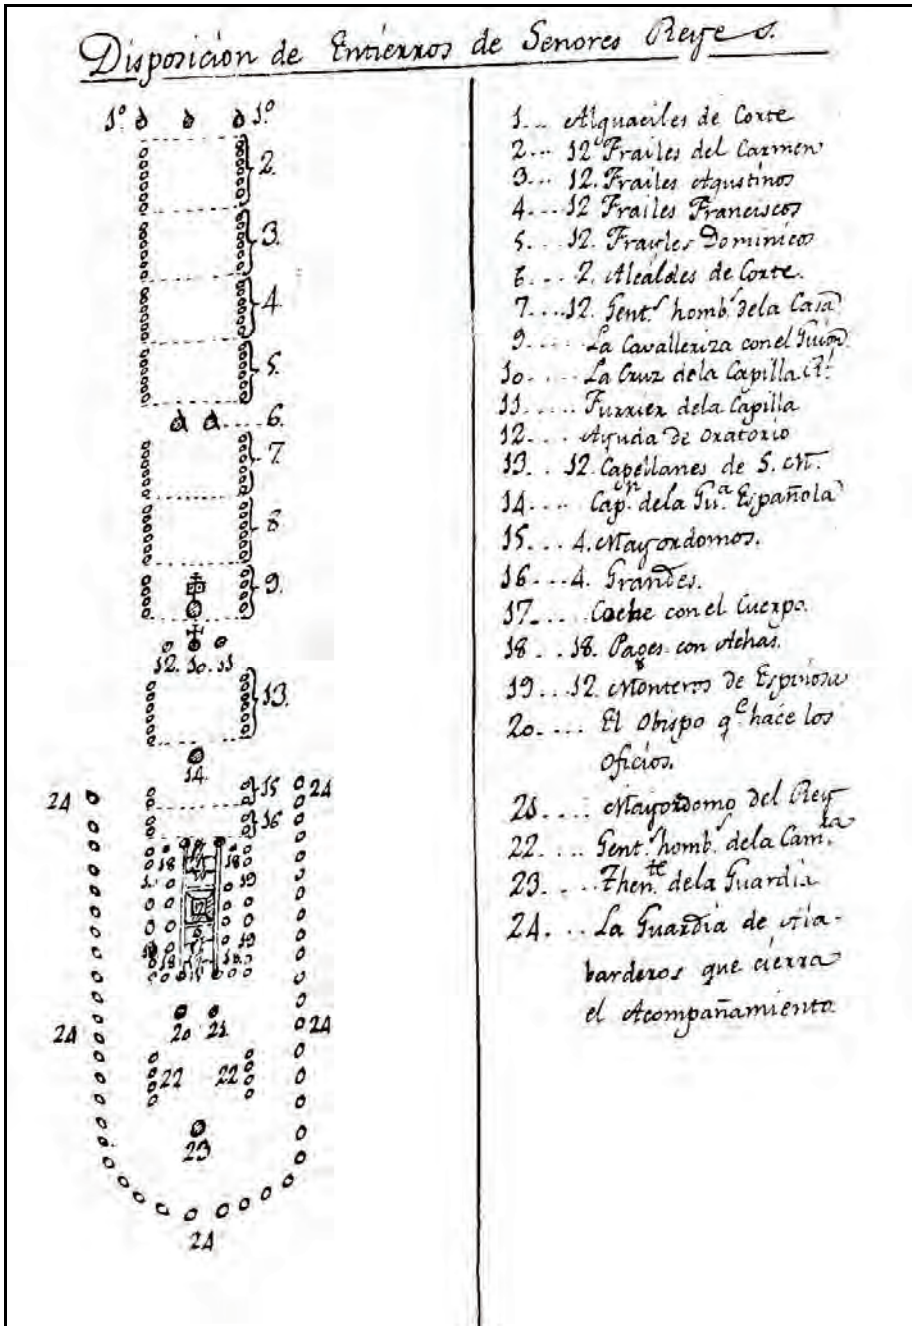 Disposicion de Entierros de Senores Reyes.
1º 1º
2.
3.
4.
5.
6.
7.
8.
9.
12. 10. 11
13.
14.
24 15 24
16
18 18
19
17
19
18 18
20 21
24 24
22 22
23
24
1... Alguaciles de Corte
2... 12 Frailes del Carmen
3... 12. Frailes Agustinos
4... 12 Frailes Franciscos
5... 12. Frayles Dominicos
6... 2. Alcaldes de Corte.
7....12. Gent.s homb.s dela Casa
9.... La Cavalleriza con el Guion
10.... La Cruz dela Capilla R.l
11..... Furrier dela Capilla
12.... Ayuda de Oratorio
13.. 12. Capellanes de S. M.
14.... Cap.n dela Gu.a Española
15... 4. Mayordomos.
16... 4. Grandes.
17.... Coche con el Cuerpo.
18.. 18. Pages con Achas.
19... 12. Monteros de Espinosa
20.... El Obispo q.e hace los
Oficios.
21.... Mayordomo del Rey
22.... Gent.s homb.s dela Cam.ra
23.... Then.te dela Guardia
24... La Guardia de Ala-
barderos que cierra
el Acompañamiento